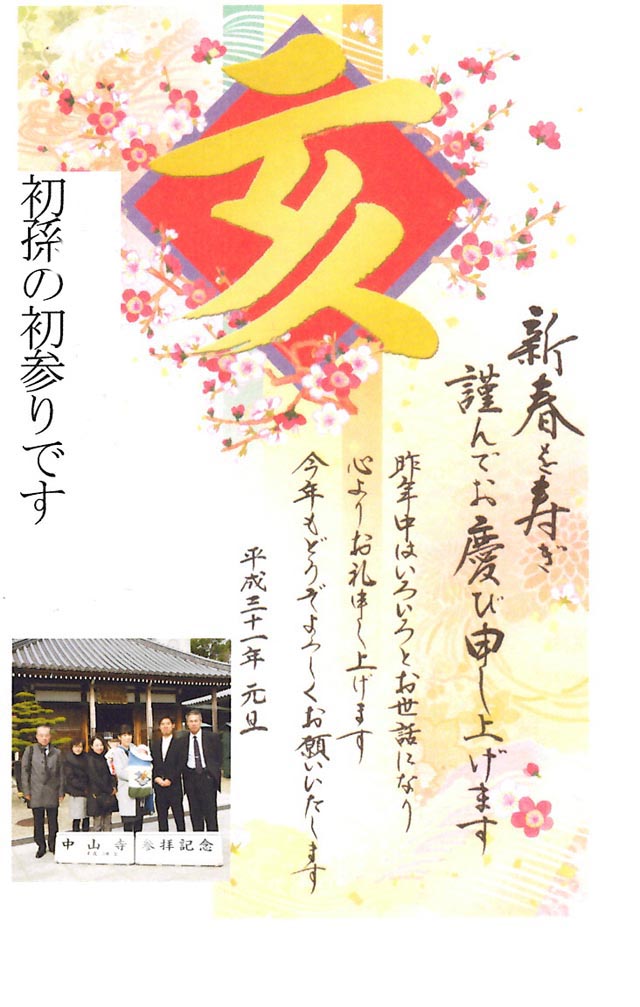 亥
新春を寿ぎ
謹んでお慶び申し上げます
昨年中はいろいろとお世話になり
心よりお礼申し上げます
今年もどうぞよろしくお願いいたします
平成三十一年 元旦
初孫の初参りです
中山寺 参拝記念